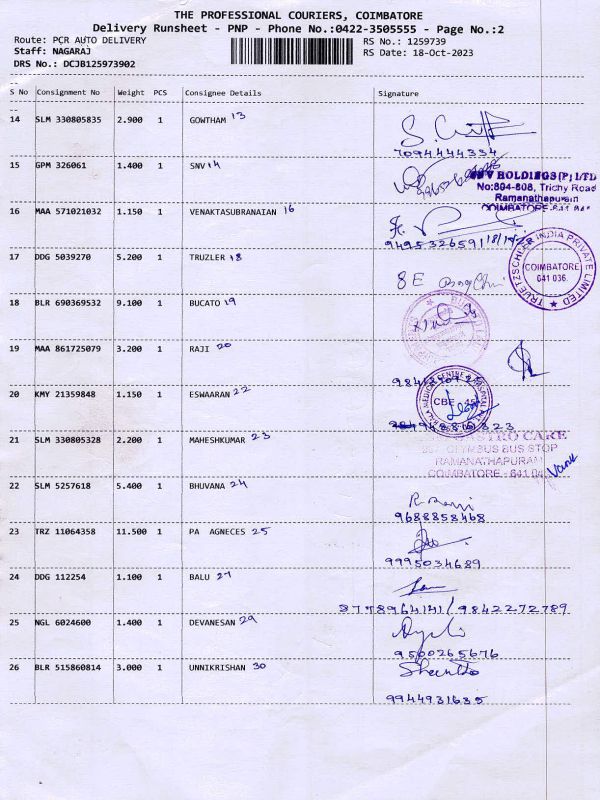 THE PROFESSIONAL COURIERS, COIMBATORE
Delivery Runsheet - PNP - Phone No.:0422-3505555 - Page No.:2
Route: PCR AUTO DELIVERY RS No.: 1259739
Staff: NAGARAJ RS Date: 18-Oct-2023
DRS No.: DCJB125973902
S No Consignment No Weight PCS Consignee Details Signature
14 SLM 330805835 2.900 1 GOWTHAM 13
7094444334
15 GPM 326061 1.400 1 SNV 14
HOLDINGS(P) LTD
No:804-808, Trichy Road
Ramanathapuram
COIMBATORE
16 MAA 571021032 1.150 1 VENAKTASUBRANAIAN 16
9495326591
17 DDG 5039270 5.200 1 TRUZLER 18
TRUETZSCHLER INDIA PRIVATE LIMITED
COIMBATORE
641 036.
18 BLR 690369532 9.100 1 BUCATO 19
19 MAA 861725079 3.200 1 RAJI 20
20 KMY 21359848 1.150 1 ESWAARAN 22
MEDICAL CENTRE
CBE - 45
21 SLM 330805328 2.200 1 MAHESHKUMAR 23
CARE
OLYMBUS BUS STOP
RAMANATHAPURAM
COIMBATORE - 641
22 SLM 5257618 5.400 1 BHUVANA 24
9688858468
23 TRZ 11064358 11.500 1 PA AGNECES 25
9995034689
24 DDG 112254 1.100 1 BALU 27
/ 9842272789
25 NGL 6024600 1.400 1 DEVANESAN 29
9500265676
26 BLR 515860814 3.000 1 UNNIKRISHAN 30
9944931635